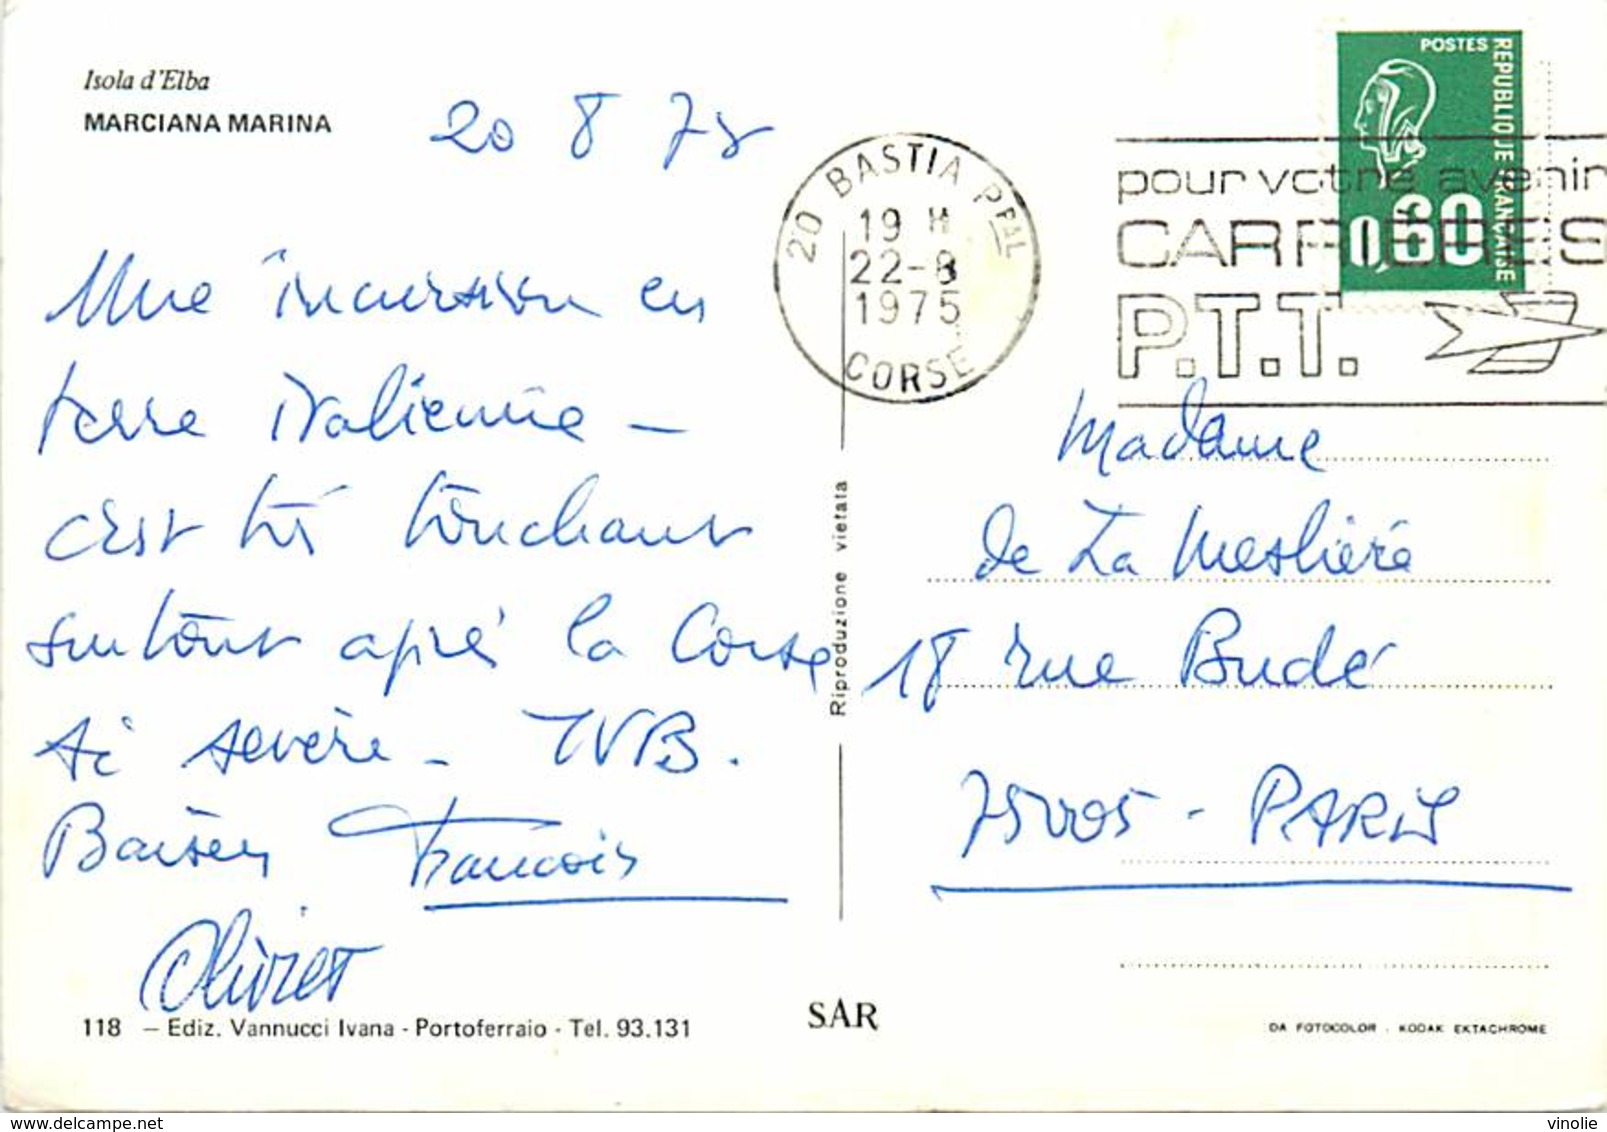 Isola d'Elba
MARCIANA MARINA
20 8 75
Une incursion en
terre italienne -
c'est très touchant
surtout après la Corse
si sevère - TVB.
Baisers François
Olivier
118 - Ediz. Vannucci Ivana - Portoferraio - Tel. 93.131
Riproduzione vietata
SAR
20 BASTIA PPAL
19 H
22-8
1975
CORSE
POSTES
REPUBLIQUE FRANÇAISE
0,60
pour votre avenir
CARRIERES
P.T.T.
Madame
de La Meslière
18 rue Budé
75005 - PARIS
DA FOTOCOLOR - KODAK EKTACHROME
www.delcampe.net
vinolie